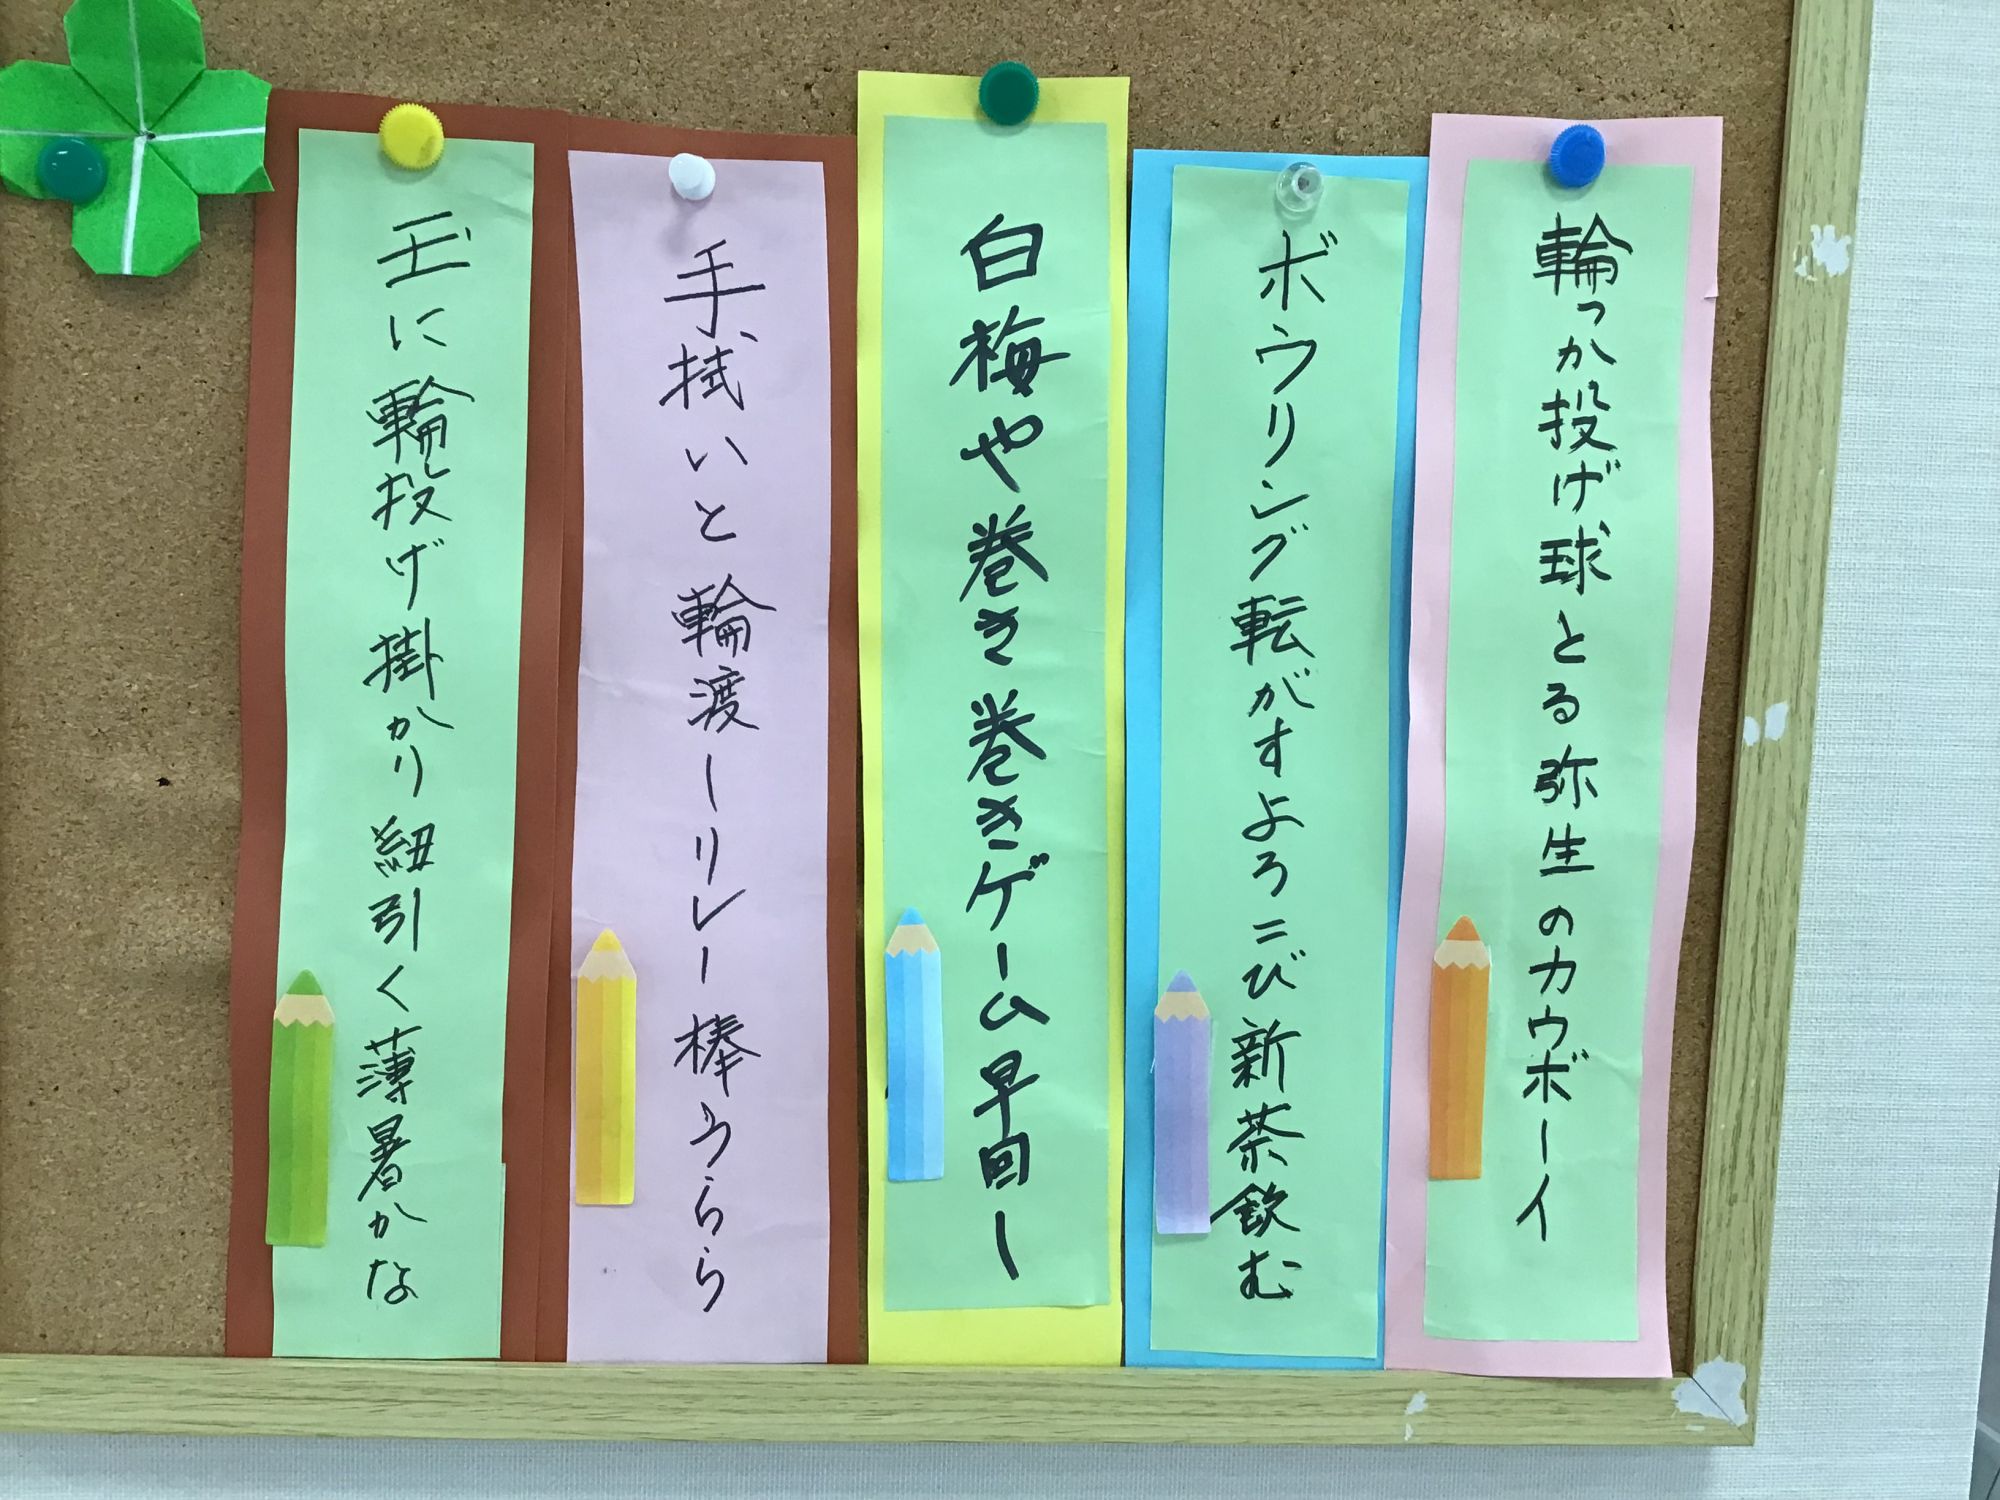 輪っか投げ球とる弥生のカウボーイ
ボウリング転がすよろこび新茶飲む
白梅や巻き巻きゲーム早回し
手拭いと輪渡しリレー棒うらら
玉に輪投げ掛かり紐引く薄暑かな